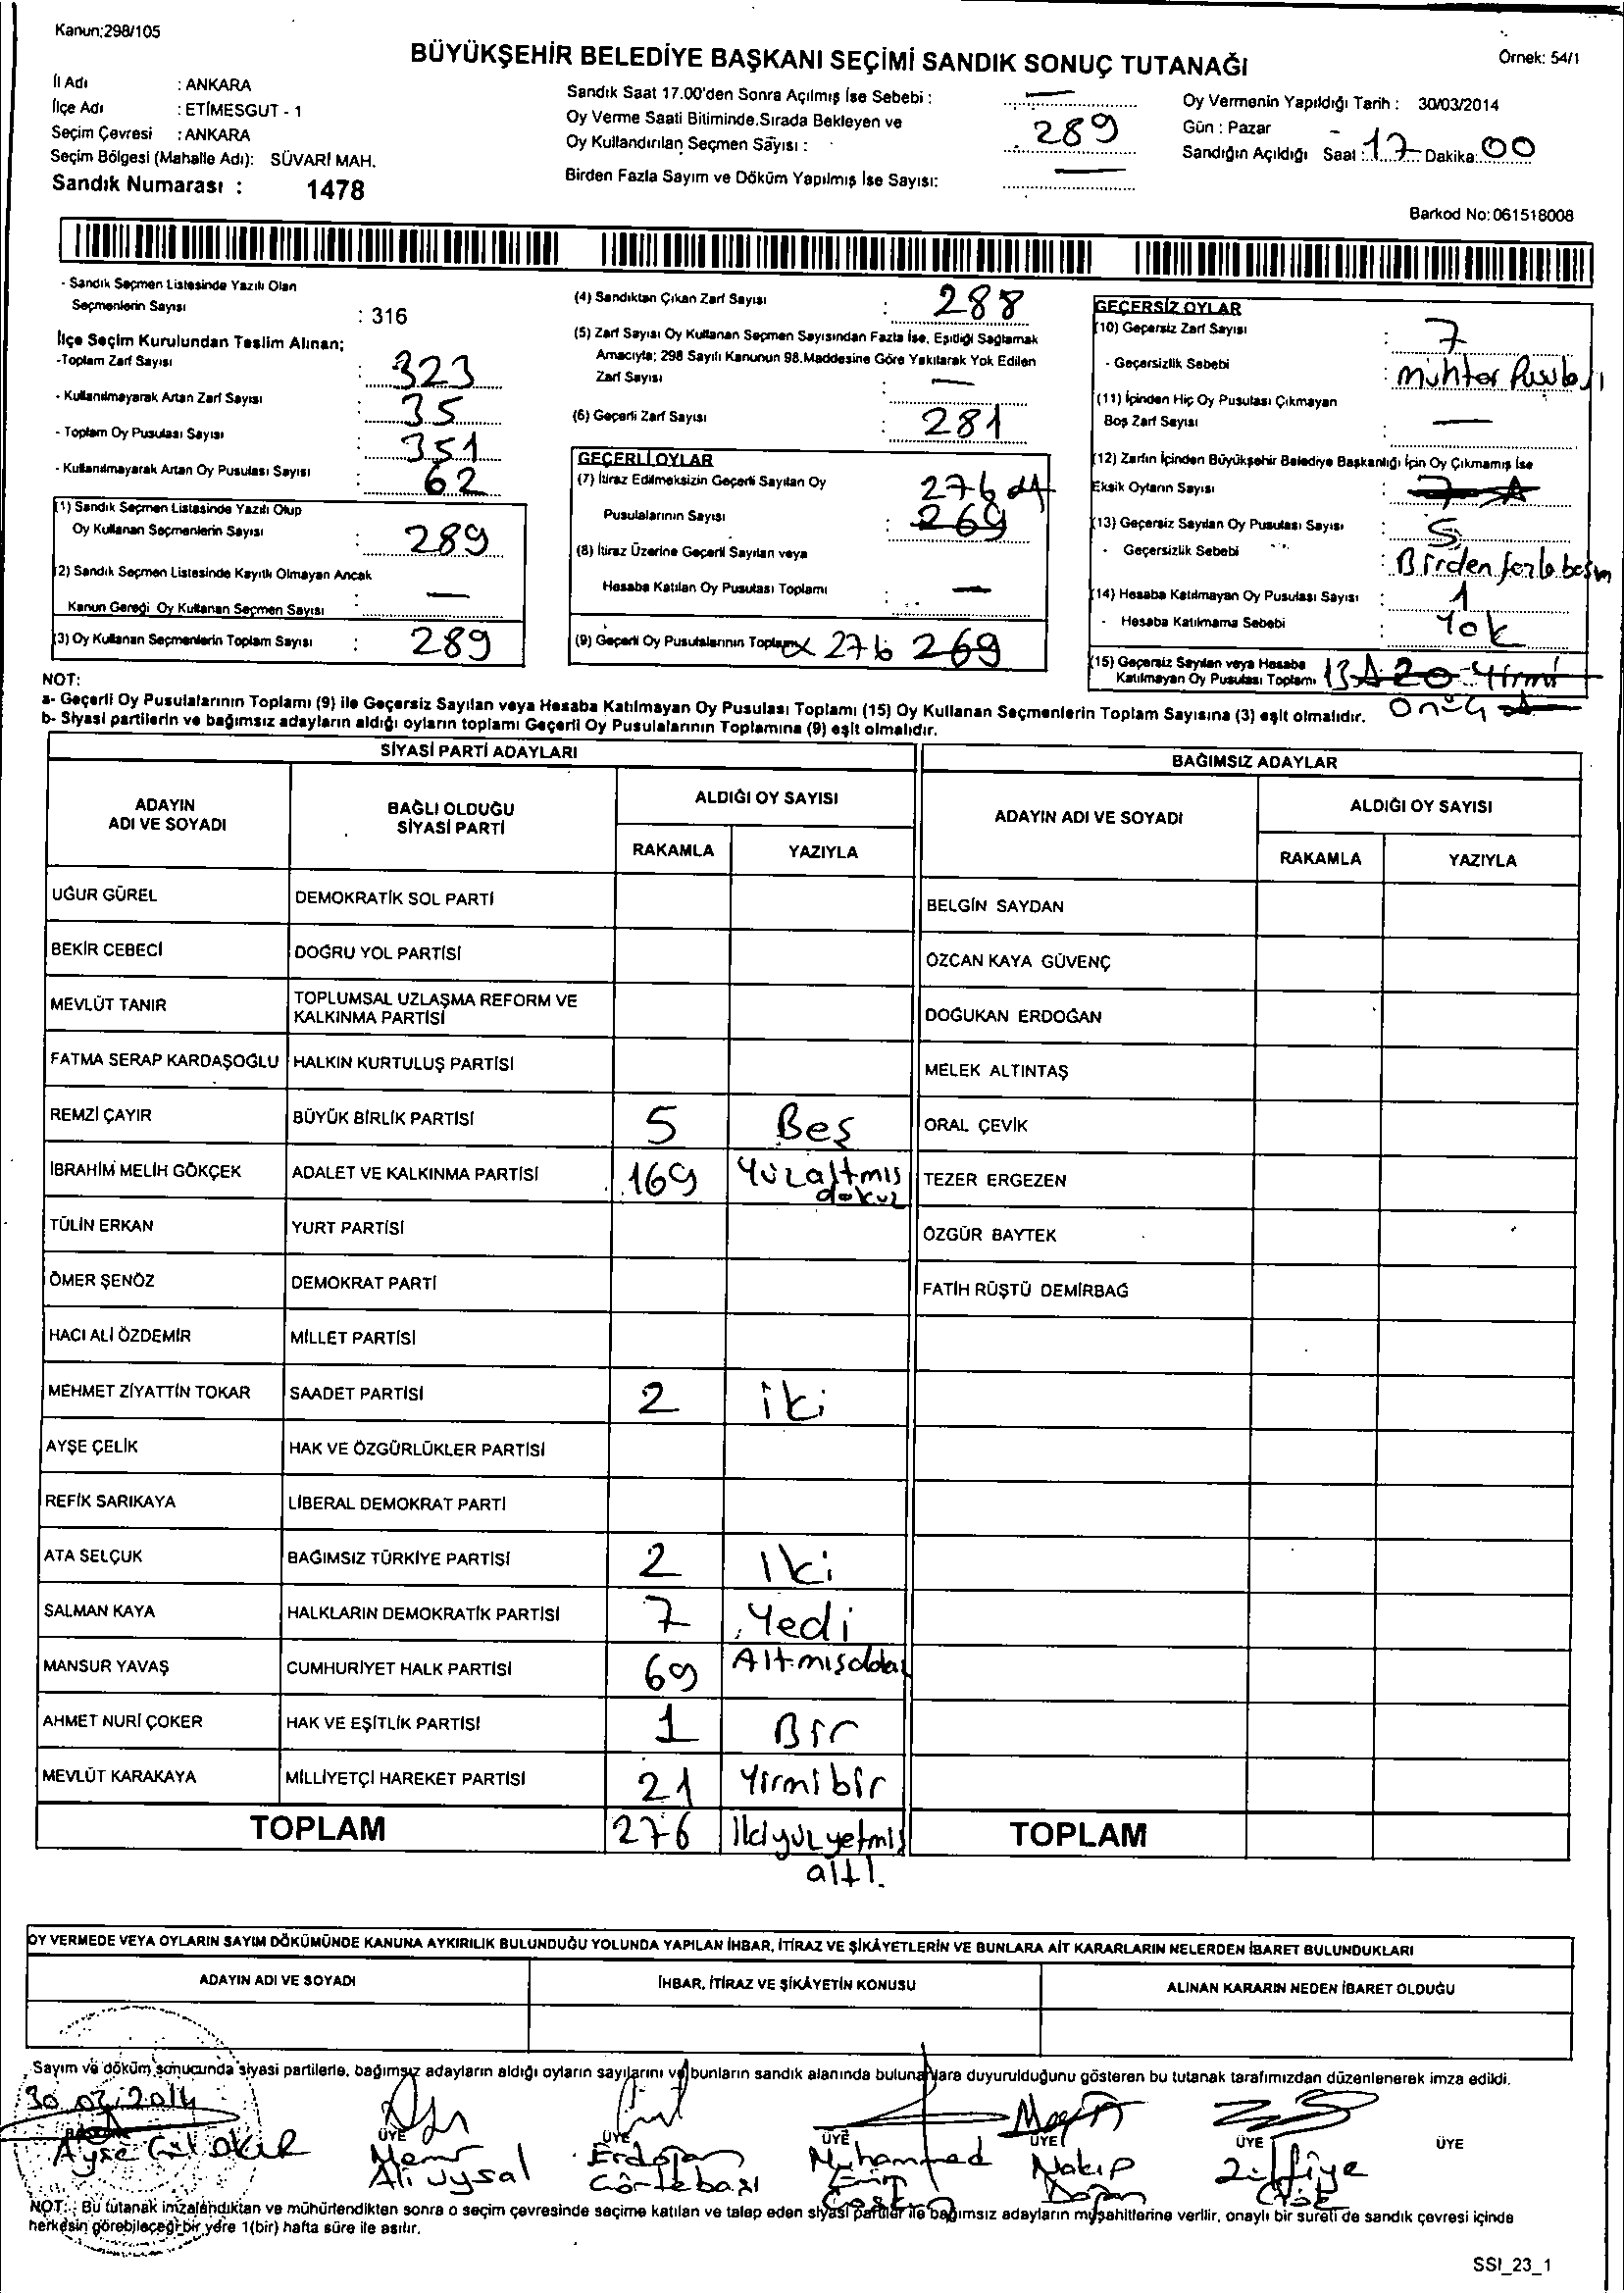 Kanun:298/105
BÜYÜKŞEHİR BELEDİYE BAŞKANI SEÇİMİ SANDIK SONUÇ TUTANAĞI
Örnek: 54/1
İl Adı : ANKARA
İlçe Adı : ETİMESGUT - 1
Seçim Çevresi : ANKARA
Seçim Bölgesi (Mahalle Adı): SÜVARİ MAH.
Sandık Numarası : 1478
Sandık Saat 17.00'den Sonra Açılmış İse Sebebi : —
Oy Verme Saati Bitiminde.Sırada Bekleyen ve
Oy Kullandırılan Seçmen Sayısı : 289
Birden Fazla Sayım ve Döküm Yapılmış İse Sayısı: —
Oy Vermenin Yapıldığı Tarih : 30/03/2014
Gün : Pazar
Sandığın Açıldığı Saat : 17 Dakika: 00
Barkod No: 061518008
- Sandık Seçmen Listesinde Yazılı Olan
Seçmenlerin Sayısı : 316
İlçe Seçim Kurulundan Teslim Alınan;
-Toplam Zarf Sayısı : 323
- Kullanılmayarak Artan Zarf Sayısı : 35
- Toplam Oy Pusulası Sayısı : 351
- Kullanılmayarak Artan Oy Pusulası Sayısı : 62
(1) Sandık Seçmen Listesinde Yazılı Olup
Oy Kullanan Seçmenlerin Sayısı : 289
(2) Sandık Seçmen Listesinde Kayıtlı Olmayan Ancak
Kanun Gereği Oy Kullanan Seçmen Sayısı : —
(3) Oy Kullanan Seçmenlerin Toplam Sayısı : 289
(4) Sandıktan Çıkan Zarf Sayısı : 288
(5) Zarf Sayısı Oy Kullanan Seçmen Sayısından Fazla İse, Eşitliği Sağlamak
Amacıyla; 298 Sayılı Kanunun 98.Maddesine Göre Yakılarak Yok Edilen
Zarf Sayısı : —
(6) Geçerli Zarf Sayısı : 281
GEÇERLİ OYLAR
(7) İtiraz Edilmeksizin Geçerli Sayılan Oy 276
Pusulalarının Sayısı : 269
(8) İtiraz Üzerine Geçerli Sayılan veya
Hesaba Katılan Oy Pusulası Toplamı : —
(9) Geçerli Oy Pusulalarının Toplamı 276 269
GEÇERSİZ OYLAR
(10) Geçersiz Zarf Sayısı : 7
- Geçersizlik Sebebi : muhtar Pusulası
(11) İçinden Hiç Oy Pusulası Çıkmayan
Boş Zarf Sayısı : —
(12) Zarfın İçinden Büyükşehir Belediye Başkanlığı İçin Oy Çıkmamış İse
Eksik Oyların Sayısı : 7
(13) Geçersiz Sayılan Oy Pusulası Sayısı : 5
- Geçersizlik Sebebi : Birden fazla basım
(14) Hesaba Katılmayan Oy Pusulası Sayısı : 1
- Hesaba Katılmama Sebebi : Yok
(15) Geçersiz Sayılan veya Hesaba
Katılmayan Oy Pusulası Toplamı 13 20 Yirmi
Onüç
NOT:
a- Geçerli Oy Pusulalarının Toplamı (9) ile Geçersiz Sayılan veya Hesaba Katılmayan Oy Pusulası Toplamı (15) Oy Kullanan Seçmenlerin Toplam Sayısına (3) eşit olmalıdır.
b- Siyasi partilerin ve bağımsız adayların aldığı oyların toplamı Geçerli Oy Pusulalarının Toplamına (9) eşit olmalıdır.
SİYASİ PARTİ ADAYLARI
ADAYIN ADI VE SOYADI
BAĞLI OLDUĞU SİYASİ PARTİ
ALDIĞI OY SAYISI
RAKAMLA YAZIYLA
UĞUR GÜREL DEMOKRATİK SOL PARTİ
BEKİR CEBECİ DOĞRU YOL PARTİSİ
MEVLÜT TANIR TOPLUMSAL UZLAŞMA REFORM VE
KALKINMA PARTİSİ
FATMA SERAP KARDAŞOĞLU HALKIN KURTULUŞ PARTİSİ
REMZİ ÇAYIR BÜYÜK BİRLİK PARTİSİ 5 Beş
İBRAHİM MELİH GÖKÇEK ADALET VE KALKINMA PARTİSİ 169 Yüzaltmış
dokuz
TÜLİN ERKAN YURT PARTİSİ
ÖMER ŞENÖZ DEMOKRAT PARTİ
HACI ALİ ÖZDEMİR MİLLET PARTİSİ
MEHMET ZİYATTİN TOKAR SAADET PARTİSİ 2 iki
AYŞE ÇELİK HAK VE ÖZGÜRLÜKLER PARTİSİ
REFİK SARIKAYA LİBERAL DEMOKRAT PARTİ
ATA SELÇUK BAĞIMSIZ TÜRKİYE PARTİSİ 2 iki
SALMAN KAYA HALKLARIN DEMOKRATİK PARTİSİ 7 Yedi
MANSUR YAVAŞ CUMHURİYET HALK PARTİSİ 69
AHMET NURİ ÇOKER HAK VE EŞİTLİK PARTİSİ 1 Bir
MEVLÜT KARAKAYA MİLLİYETÇİ HAREKET PARTİSİ 21 Yirmi bir
TOPLAM 276 İkiyüzyetmiş
altı.
BAĞIMSIZ ADAYLAR
ADAYIN ADI VE SOYADI
ALDIĞI OY SAYISI
RAKAMLA YAZIYLA
BELGİN SAYDAN
ÖZCAN KAYA GÜVENÇ
DOĞUKAN ERDOĞAN
MELEK ALTINTAŞ
ORAL ÇEVİK
TEZER ERGEZEN
ÖZGÜR BAYTEK
FATİH RÜŞTÜ DEMİRBAĞ
TOPLAM
OY VERMEDE VEYA OYLARIN SAYIM DÖKÜMÜNDE KANUNA AYKIRILIK BULUNDUĞU YOLUNDA YAPILAN İHBAR, İTİRAZ VE ŞİKÂYETLERİN VE BUNLARA AİT KARARLARIN NELERDEN İBARET BULUNDUKLARI
ADAYIN ADI VE SOYADI İHBAR, İTİRAZ VE ŞİKÂYETİN KONUSU ALINAN KARARIN NEDEN İBARET OLDUĞU
Sayım ve döküm sonucunda siyasi partilerle, bağımsız adayların aldığı oyların sayılarını ve bunların sandık alanında bulunanlara duyurulduğunu gösteren bu tutanak tarafımızdan düzenlenerek imza edildi.
30.03.2014
ÜYE ÜYE ÜYE ÜYE ÜYE ÜYE
Ayşe Erdoğan Muhammed Nakip Zülfiye
Ali uysal Emin Doğan
NOT: ; Bu tutanak imzalandıktan ve mühürlendikten sonra o seçim çevresinde seçime katılan ve talep eden siyasi partiler ile bağımsız adayların müşahitlerine verilir, onaylı bir sureti de sandık çevresi içinde
herkesin görebileceği bir yere 1(bir) hafta süre ile asılır.
SSI_23_1